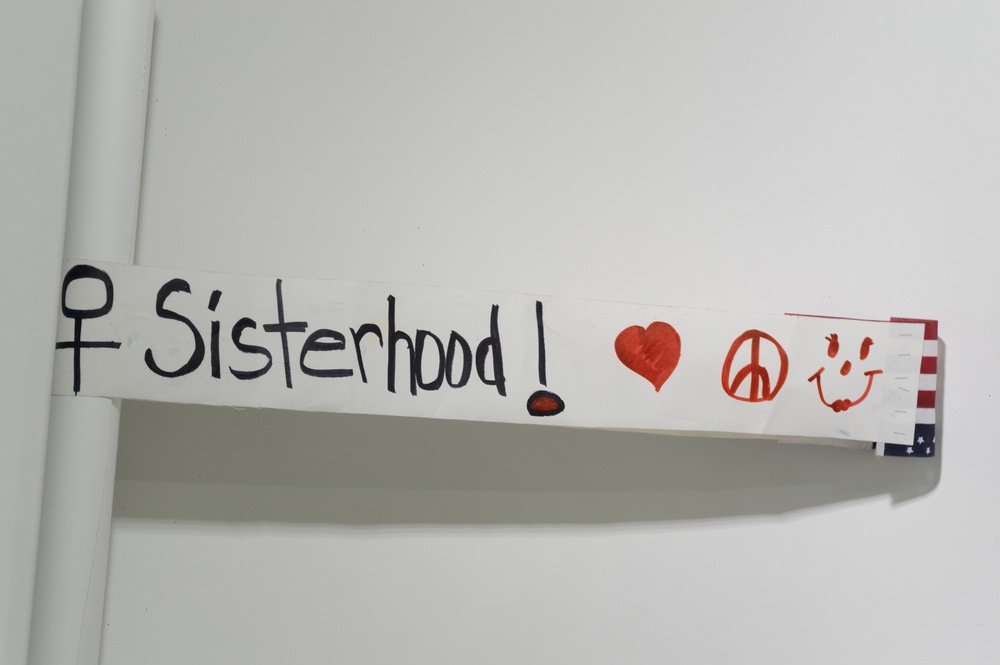 ♀ Sisterhood!